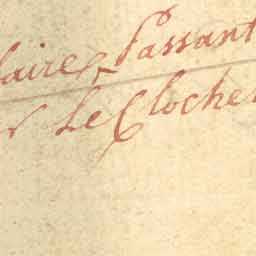 faires Passant
r Le Clocher